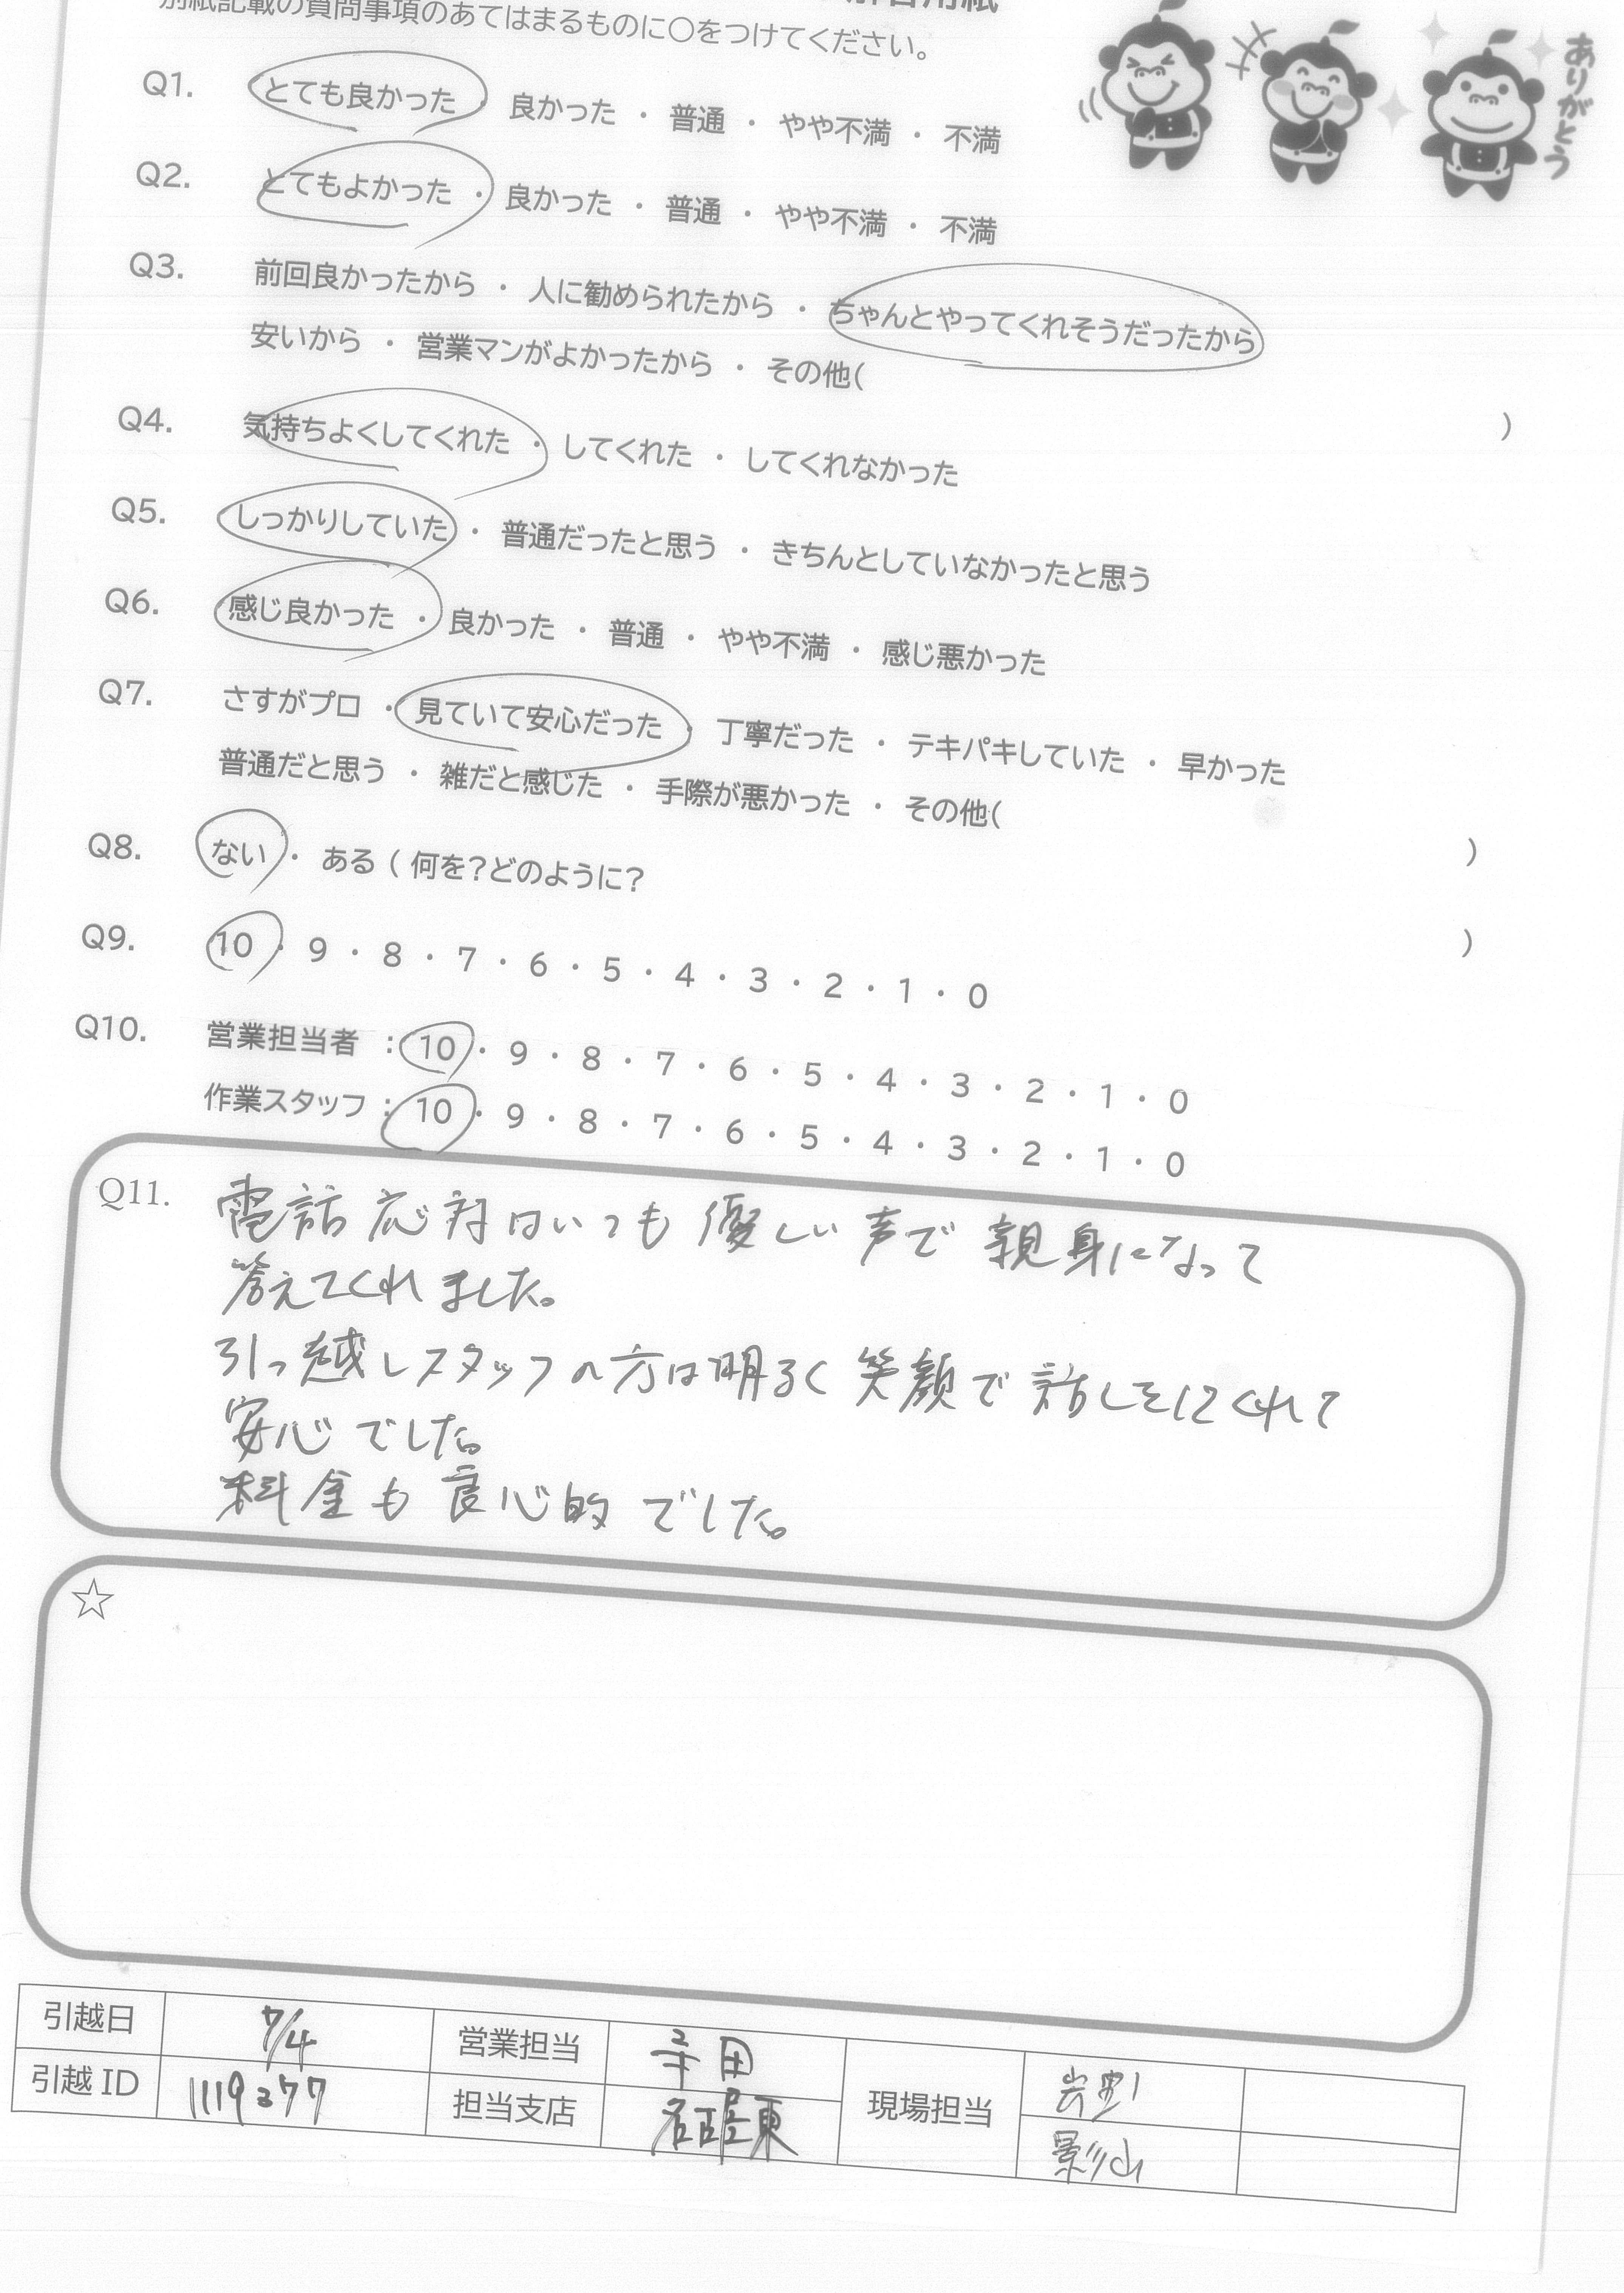 別紙記載の質問事項のあてはまるものに○をつけてください。
ありがとう
Q1. とても良かった ・ 良かった ・ 普通 ・ やや不満 ・ 不満
Q2. とてもよかった ・ 良かった ・ 普通 ・ やや不満 ・ 不満
Q3. 前回良かったから ・ 人に勧められたから ・ ちゃんとやってくれそうだったから
安いから ・ 営業マンがよかったから ・ その他( )
Q4. 気持ちよくしてくれた ・ してくれた ・ してくれなかった
Q5. しっかりしていた ・ 普通だったと思う ・ きちんとしていなかったと思う
Q6. 感じ良かった ・ 良かった ・ 普通 ・ やや不満 ・ 感じ悪かった
Q7. さすがプロ ・ 見ていて安心だった ・ 丁寧だった ・ テキパキしていた ・ 早かった
普通だと思う ・ 雑だと感じた ・ 手際が悪かった ・ その他( )
Q8. ない ・ ある ( 何を?どのように? )
Q9. 10 ・ 9 ・ 8 ・ 7 ・ 6 ・ 5 ・ 4 ・ 3 ・ 2 ・ 1 ・ 0
Q10. 営業担当者 : 10 ・ 9 ・ 8 ・ 7 ・ 6 ・ 5 ・ 4 ・ 3 ・ 2 ・ 1 ・ 0
作業スタッフ : 10 ・ 9 ・ 8 ・ 7 ・ 6 ・ 5 ・ 4 ・ 3 ・ 2 ・ 1 ・ 0
Q11. 電話応対はいつも優しい声で親身になって
答えてくれました。
引っ越しスタッフの方は明るく笑顔で話しをしてくれて
安心でした。
料金も良心的でした。
☆
引越日 7/4 営業担当 寺田 現場担当
引越ID 1119277 担当支店 名古屋東 影山